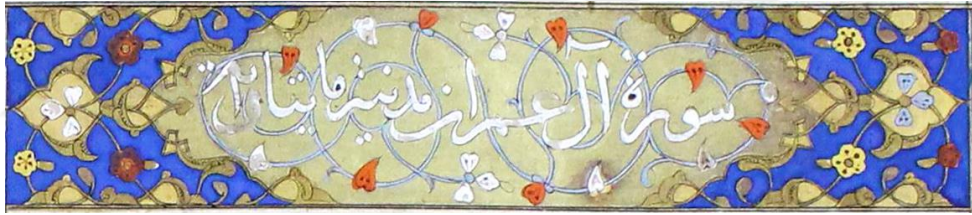 سورة آل عمران مدنية مايتا آية